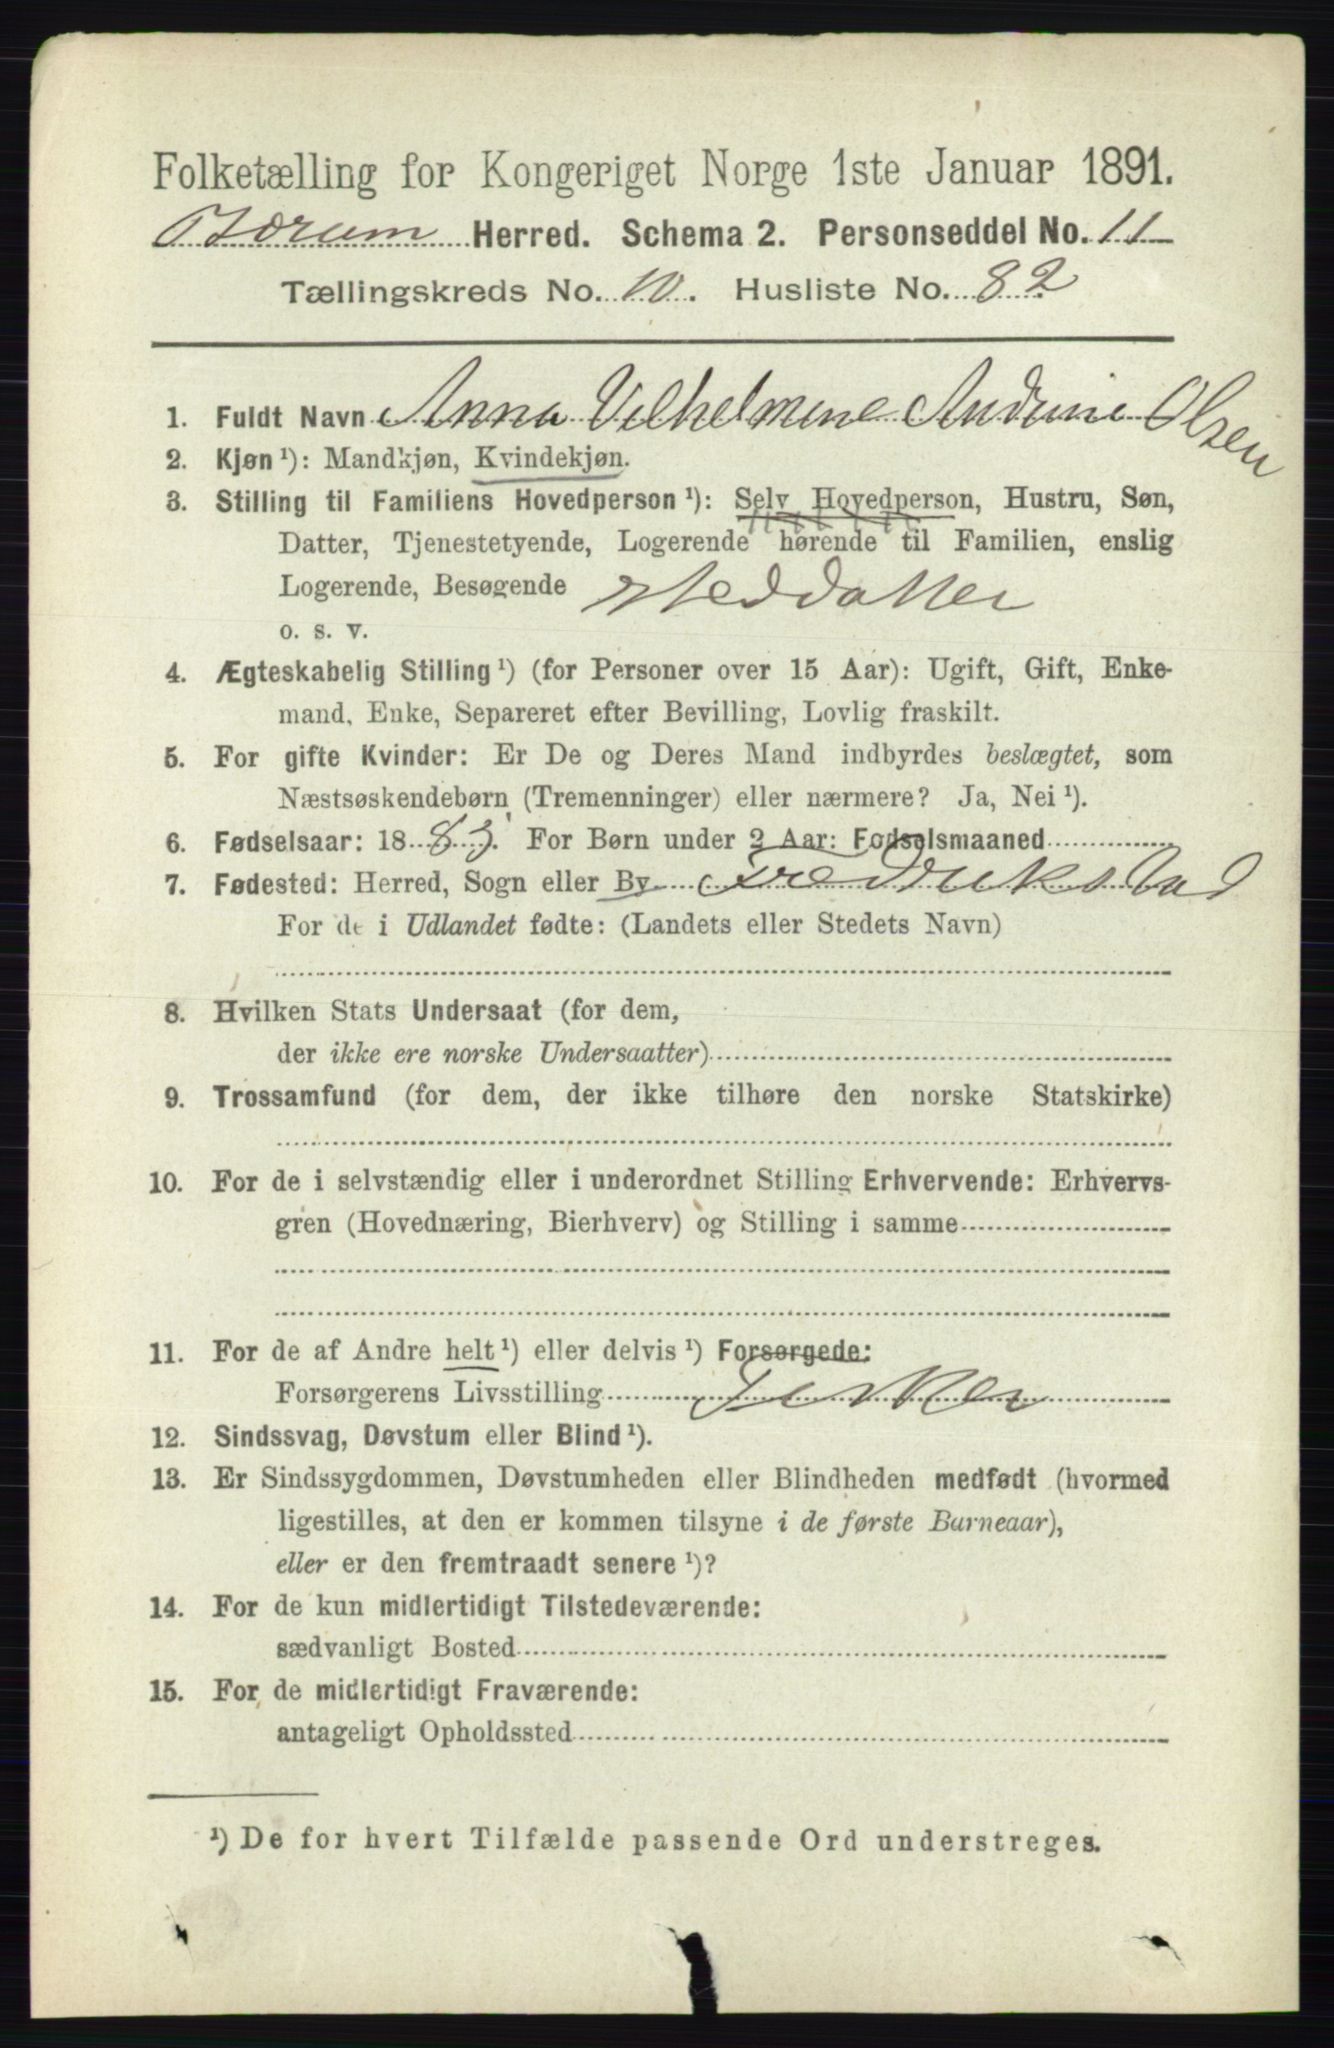 Folketælling for Kongeriget Norge 1ste Januar 1891.
Bærum Herred. Schema 2. Personseddel No. 11
Tællingskreds No. 10. Husliste No. 82
1. Fuldt Navn Anna Vilhelmine Andrine Olsen
2. Kjøn ¹): Mandkjøn, Kvindekjøn.
3. Stilling til Familiens Hovedperson ¹): Selv Hovedperson, Hustru, Søn,
Datter, Tjenestetyende, Logerende hørende til Familien, enslig
Logerende, Besøgende steddatter
o. s. v.
4. Ægteskabelig Stilling ¹) (for Personer over 15 Aar): Ugift, Gift, Enke-
mand, Enke, Separeret efter Bevilling, Lovlig fraskilt.
5. For gifte Kvinder: Er De og Deres Mand indbyrdes beslægtet, som
Næstsøskendebørn (Tremenninger) eller nærmere? Ja, Nei ¹).
6. Fødselsaar: 1883. For Børn under 2 Aar: Fødselsmaaned
7. Fødested: Herred, Sogn eller By Fredrikstad
For de i Udlandet fødte: (Landets eller Stedets Navn)
8. Hvilken Stats Undersaat (for dem,
der ikke ere norske Undersaatter)
9. Trossamfund (for dem, der ikke tilhøre den norske Statskirke)
10. For de i selvstændig eller i underordnet Stilling Erhvervende: Erhvervs-
gren (Hovednæring, Bierhverv) og Stilling i samme
11. For de af Andre helt ¹) eller delvis ¹) Forsørgede:
Forsørgerens Livsstilling
12. Sindssvag, Døvstum eller Blind ¹).
13. Er Sindssygdommen, Døvstumheden eller Blindheden medfødt (hvormed
ligestilles, at den er kommen tilsyne i de første Barneaar),
eller er den fremtraadt senere ¹)?
14. For de kun midlertidigt Tilstedeværende:
sædvanligt Bosted
15. For de midlertidigt Fraværende:
antageligt Opholdssted
¹) De for hvert Tilfælde passende Ord understreges.